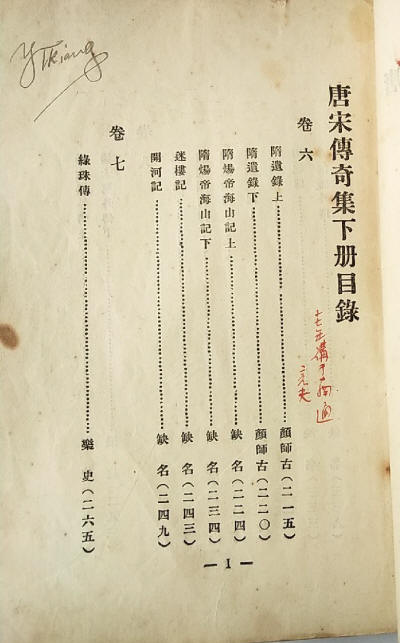 唐宋傳奇集下册目錄
卷六
隋遺錄上……顏師古(二一五)
隋遺錄下……顏師古(二二〇)
隋煬帝海山記上……缺名(二二四)
隋煬帝海山記下……缺名(二三四)
迷樓記……缺名(二四三)
開河記……缺名(二四九)
卷七
綠珠傳……樂史(二六五)
— 1 —